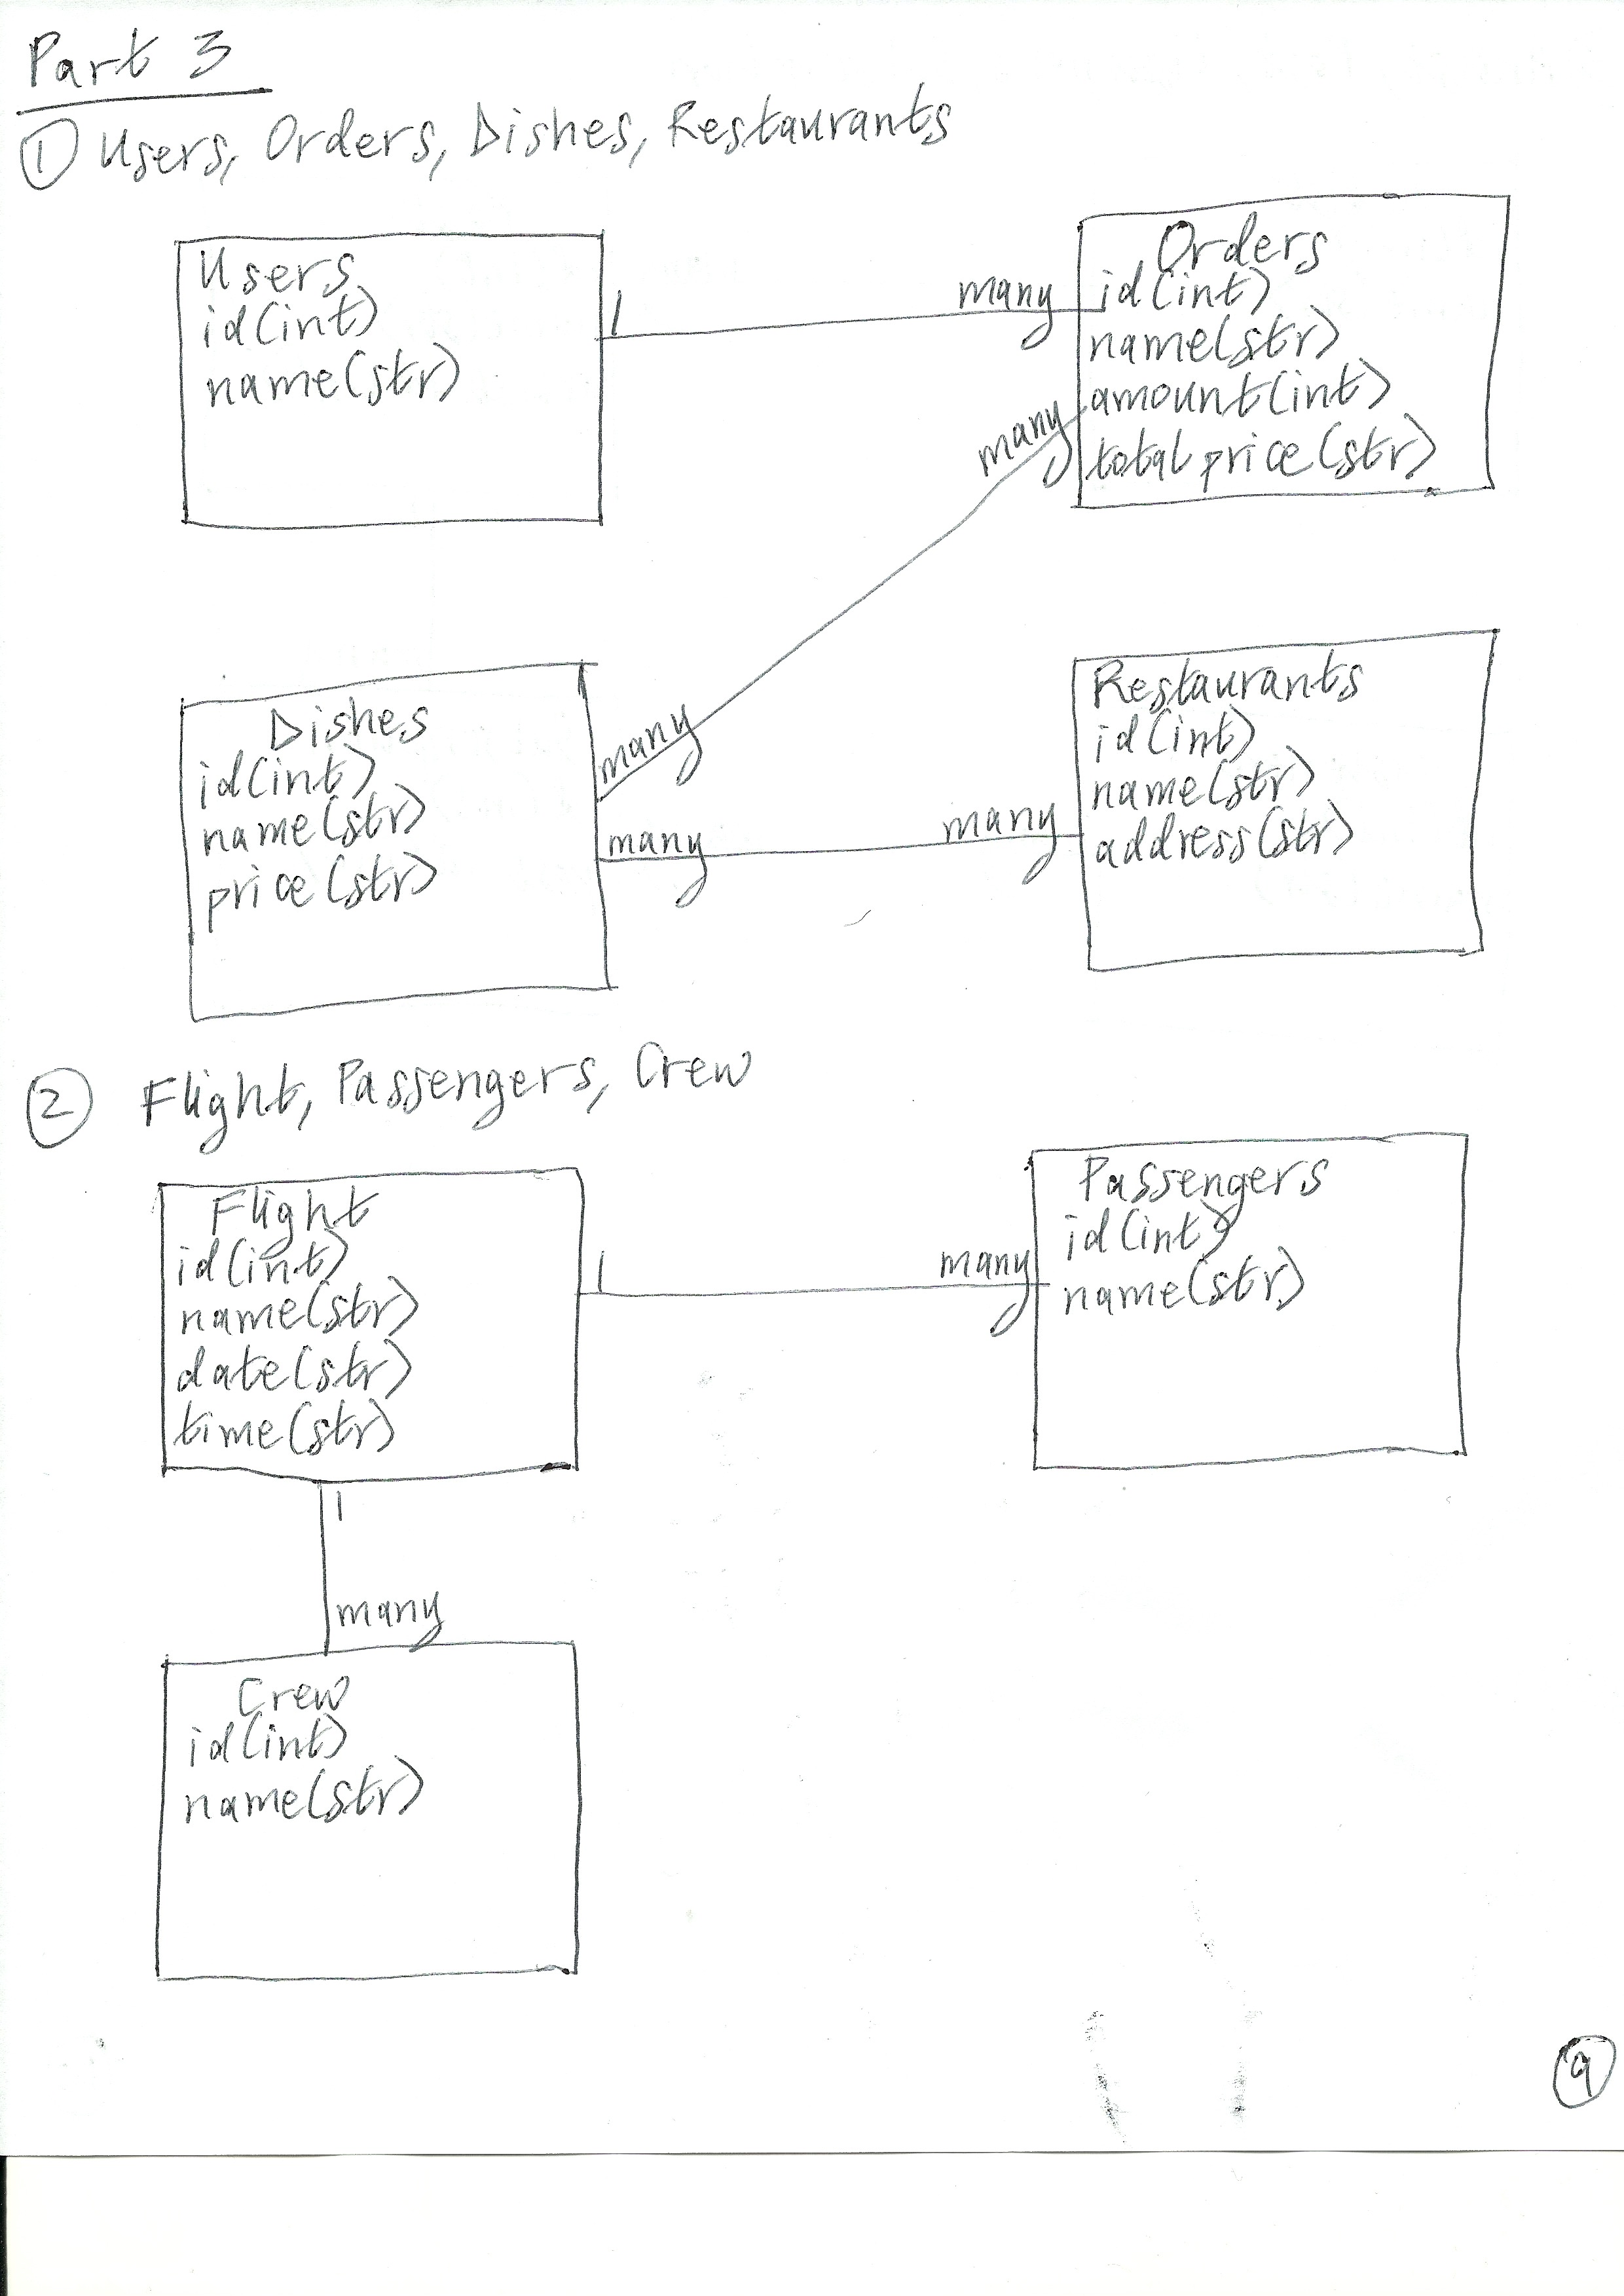 Part 3
① Users, Orders, Dishes, Restaurants
Users
id(int)
name(str)
1
many
Orders
id(int)
name(str)
amount(int)
total price(str)
many
Dishes
id(int)
name(str)
price(str)
many
many
many
Restaurants
id(int)
name(str)
address(str)
② Flight, Passengers, Crew
Flight
id(int)
name(str)
date(str)
time(str)
1
many
Passengers
id(int)
name(str)
1
many
Crew
id(int)
name(str)
9